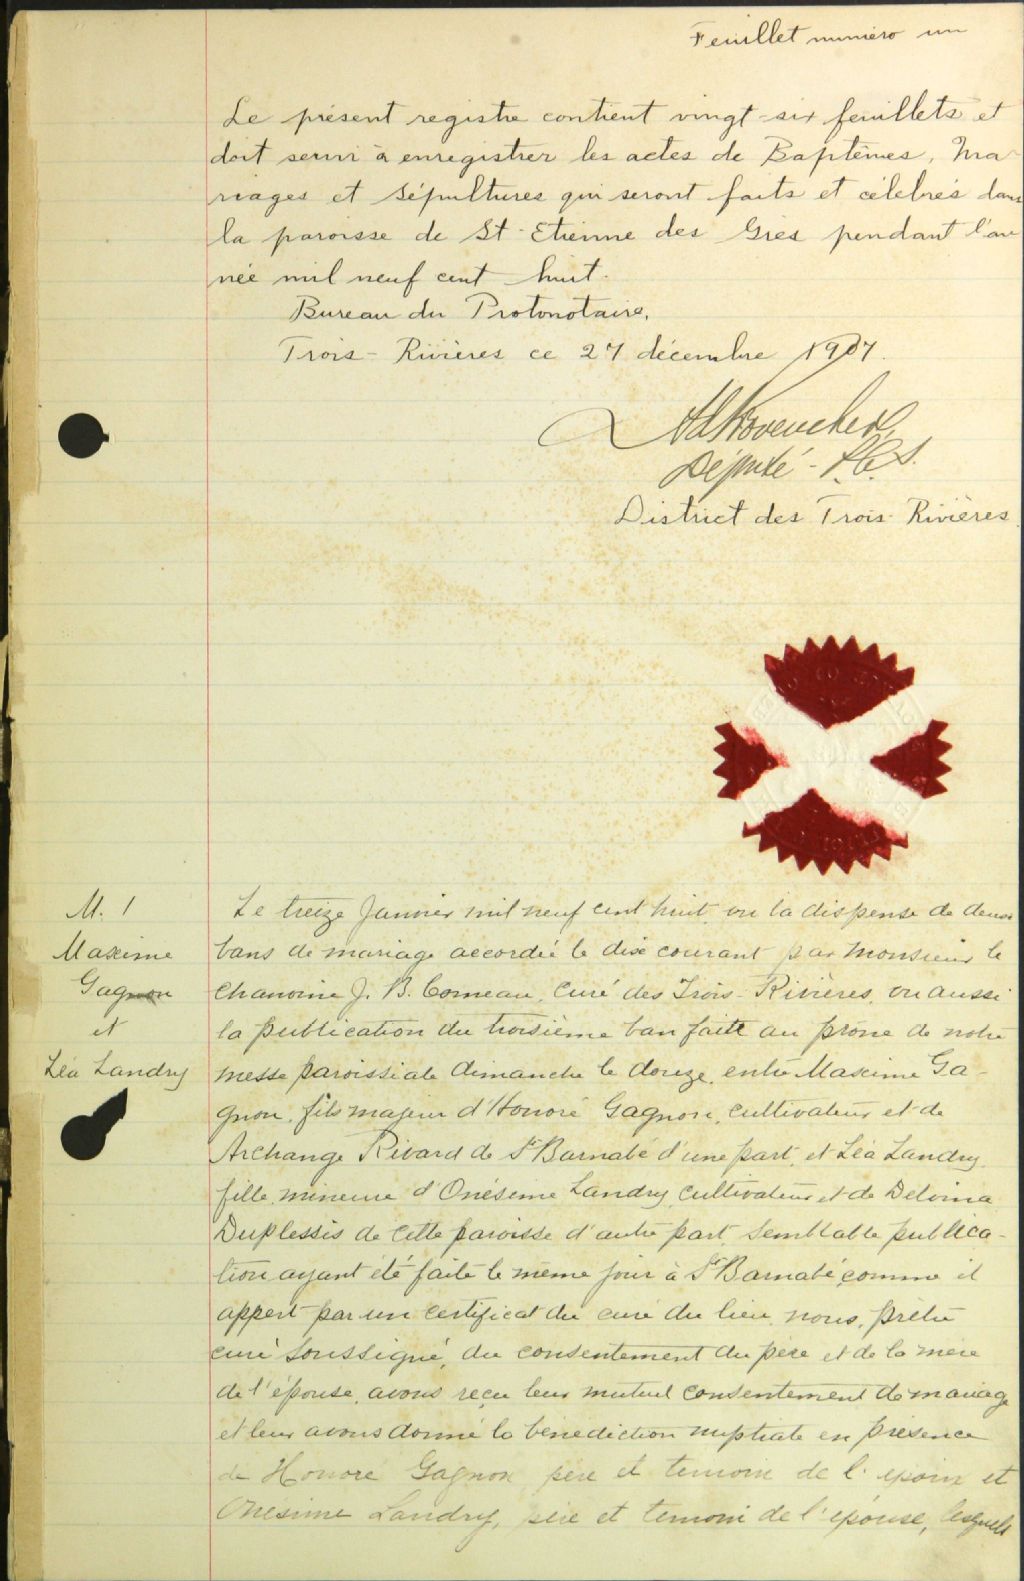 Feuillet numéro un
Le présent registre contient vingt-six feuillets et
doit servir à enregistrer les actes de Baptêmes, Ma-
riages et Sépultures qui seront faits et célébrés dans
la paroisse de St-Etienne des Grès pendant l'an
née mil neuf cent huit.
Bureau du Protonotaire,
Trois-Rivières ce 27 décembre 1907.
Ad Provencher
Député-P.C.S.
District des Trois-Rivières
M. 1
Maxime
Gagnon
et
Léa Landry
Le treize Janvier mil neuf cent huit, vu la dispense de deux
bans de mariage accordée le dix courant par Monsieur le
Chanoine J. B. Comeau, curé des Trois-Rivières, vu aussi
la publication du troisième ban faite au prône de notre
messe paroissiale dimanche le douze, entre Maxime Ga-
gnon, fils majeur d'Honoré Gagnon, cultivateur et de
Archange Rivard de St Barnabé d'une part, et Léa Landry
fille mineure d'Onésime Landry, cultivateur et de Delvina
Duplessis de cette paroisse d'autre part, semblable publica-
tion ayant été faite le même jour à St Barnabé, comme il
appert par un certificat du curé du lieu, nous, prêtre
curé soussigné, du consentement du père et de la mère
de l'épouse, avons reçu leur mutuel consentement de mariage
et leur avons donné la bénédiction nuptiale en présence
de Honoré Gagnon père et temoin de l'epoux et
Onesime Landry, père et temoin de l'épouse, lesquels